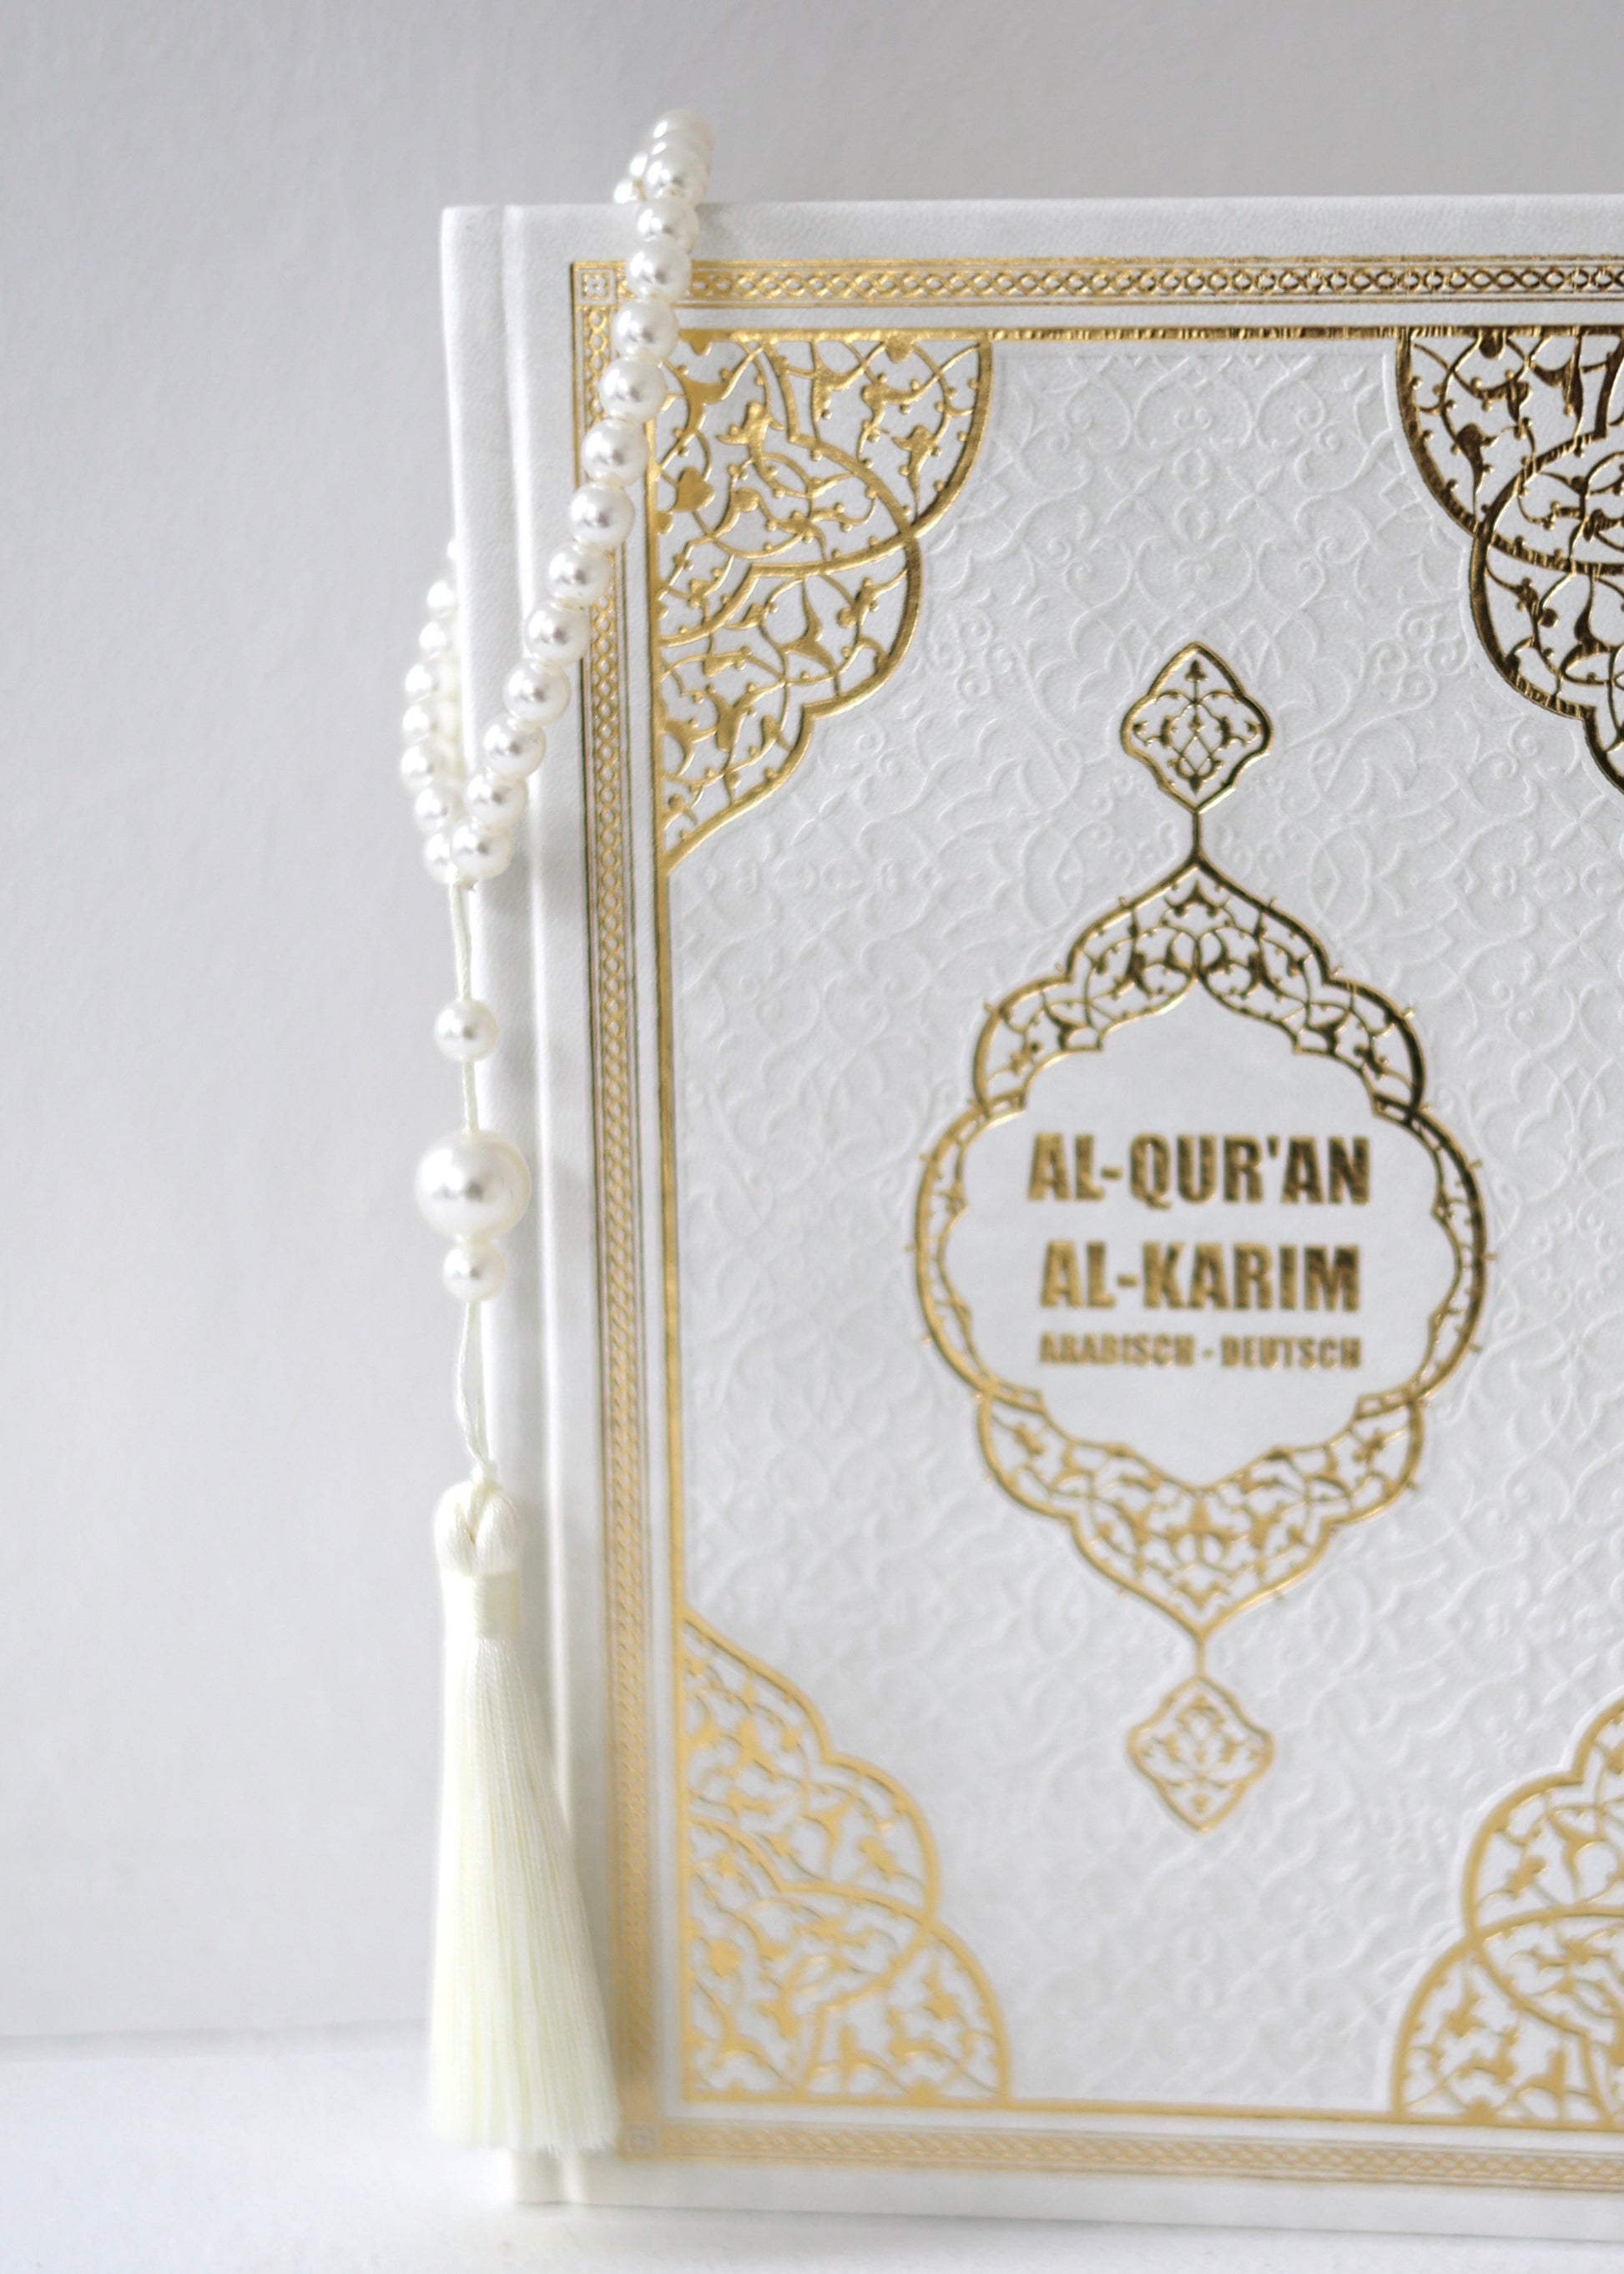 AL-QUR'AN
AL-KARIM
ARABISCH - DEUTSCH